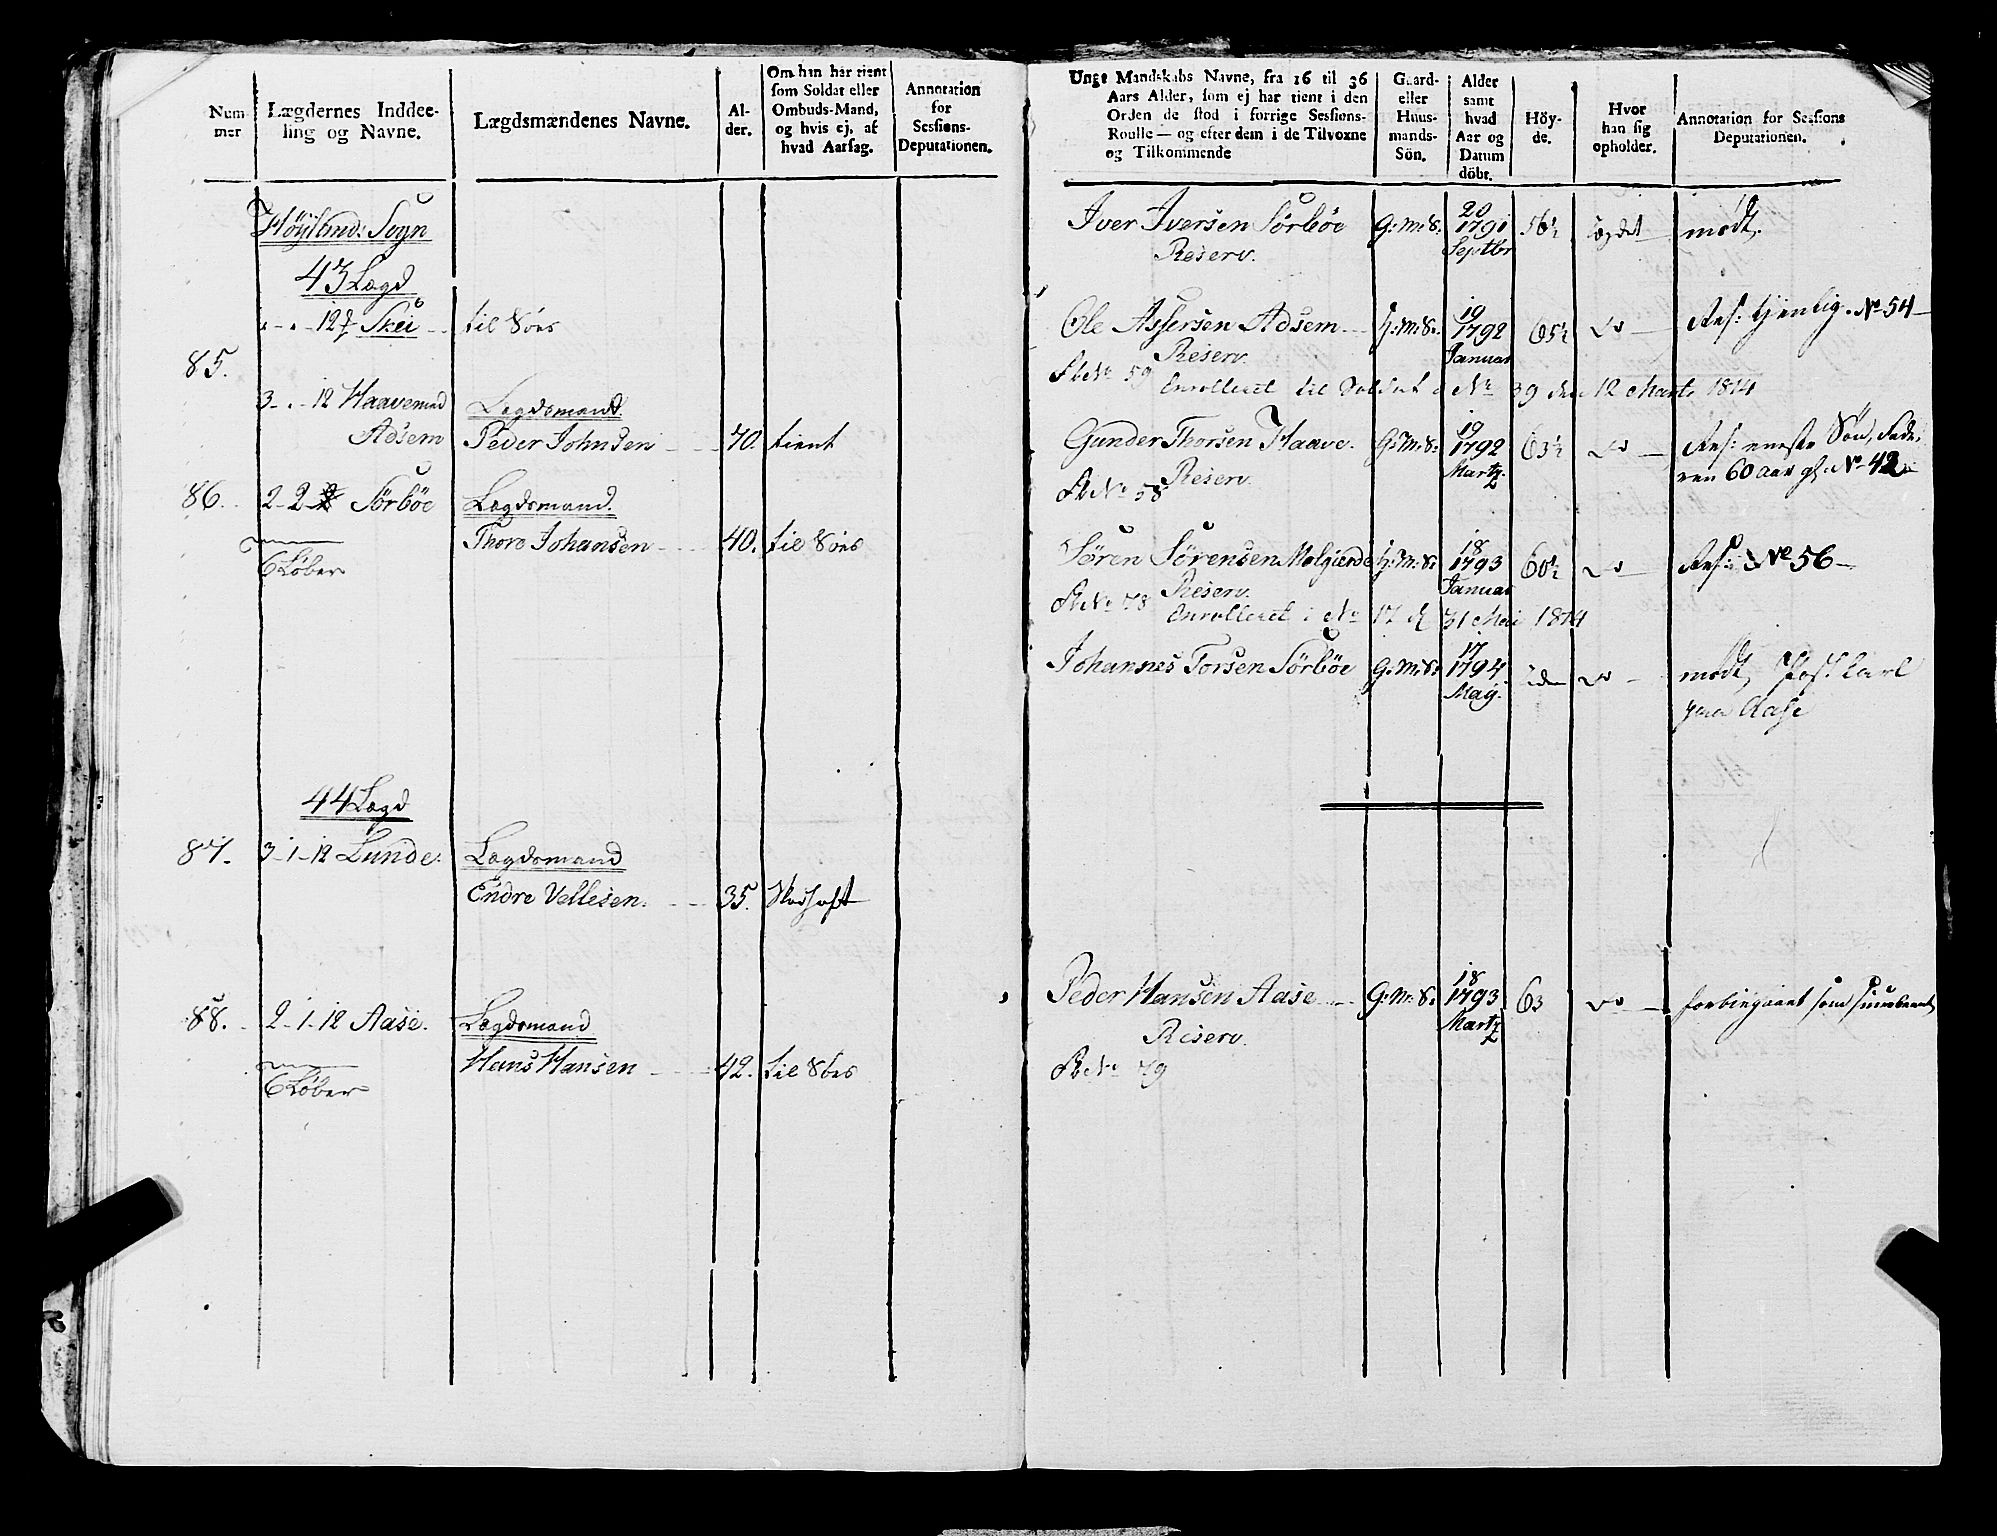 Num-
mer
Lægdernes Inddee-
ling og Navne.
Lægdsmændenes Navne.
Al-
der.
Om han har tient
som Soldat eller
Ombuds-Mand,
og hvis ej, af
hvad Aarsag.
Annotation
for
Sessions-
Deputationen.
Höyland: Sogn
43 Lægd
Skei til Söes
85.
3 - " - 12 Haavemed Lægdsmand.
Adsem Peder Johnsen 70. tient
86. 2-2- Sörböe Lægdsmand.
Thore Johansen 40. til Söes
6 Löber
44 Lægd
87. 3-1-12 Lunde. Lægdsmand
Endre Vellesen. 35.
88. 2-1-12 Aase. Lægdsmand
Hans Hansen 42. til Söes
6 Löber
Unge Mandskabs Navne, fra 16 til 36
Aars Alder, som ej har tient i den
Orden de stod i forrige Sessions-
Roulle — og efter dem i de Tilvoxne
og Tilkommende
Gaard-
eller
Huus-
mands-
Sön.
Alder
samt
hvad
Aar og
Datum
döbt.
Höy-
de.
Hvor
han sig
opholder.
Annotation for Sessions
Deputationen.
20
Iver Iversen Sörböe G:M:S: 1791 56½ Lægdet mödt.
Reserv. Septbr
19
Ole Assersen Adsem H:M:S: 1792 65½ do Res: tjenlig. No 54
Reserv. Januar
No 59
Enrolleret til Soldat No 39 den 12 Marts 1814
19
Gunder Thorsen Haave. G:M:S: 1792 63½ do Res: eneste Sön, Fade-
Reserv. Martz ren 60 aar gl. No 42
No 58
18
Sören Sörensen Molgierde H:M:S: 1793 60½ do Res: No 56
Reserv. Januar
No 78
Enrolleret i No 17 d 31 Mai 1814
17
Johannes Torsen Sörböe G:M:S: 1794 do mödt,
Maij. paa Aase
18
Peder Hansen Aase G:M:S: 1793 63 do forbigaaet som
Reserv. Martz
No 79